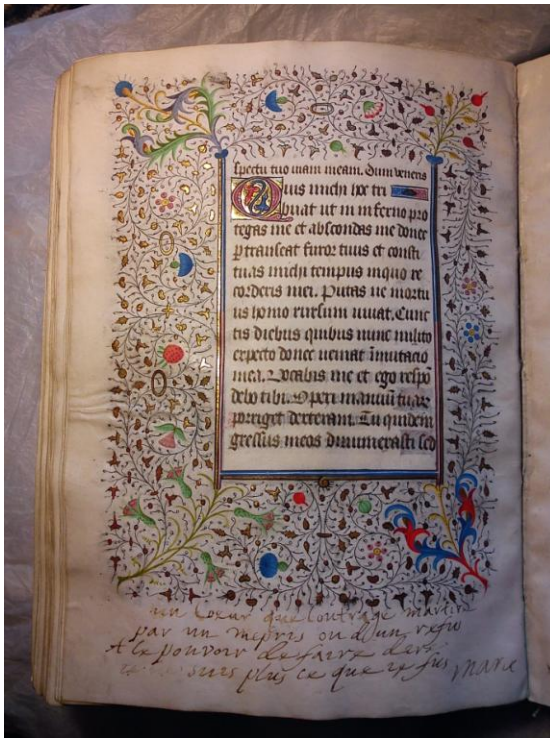 spectu tuo uiam meam. Dum ueneris
Quis michi hoc tri
buat ut in inferno pro
tegas me et abscondas me donec
ptranseat furor tuus et consti
tuas michi tempus in quo re
corderis mei. Putas ne mortu
us homo rursum uiuat. Cunc
tis diebus quibus nunc milito
expecto donec ueniat īmutacio
mea. Vocabis me et ego respō
debo tibi. Operi manuū tuar
porriget dexteram. Tu quidem
gressus meos dinumerasti sed
un Coeur que loutrage martire
par un mepris ou dun refus
A le pouvoir de faire dere
suis plus ce que ie fus Marie